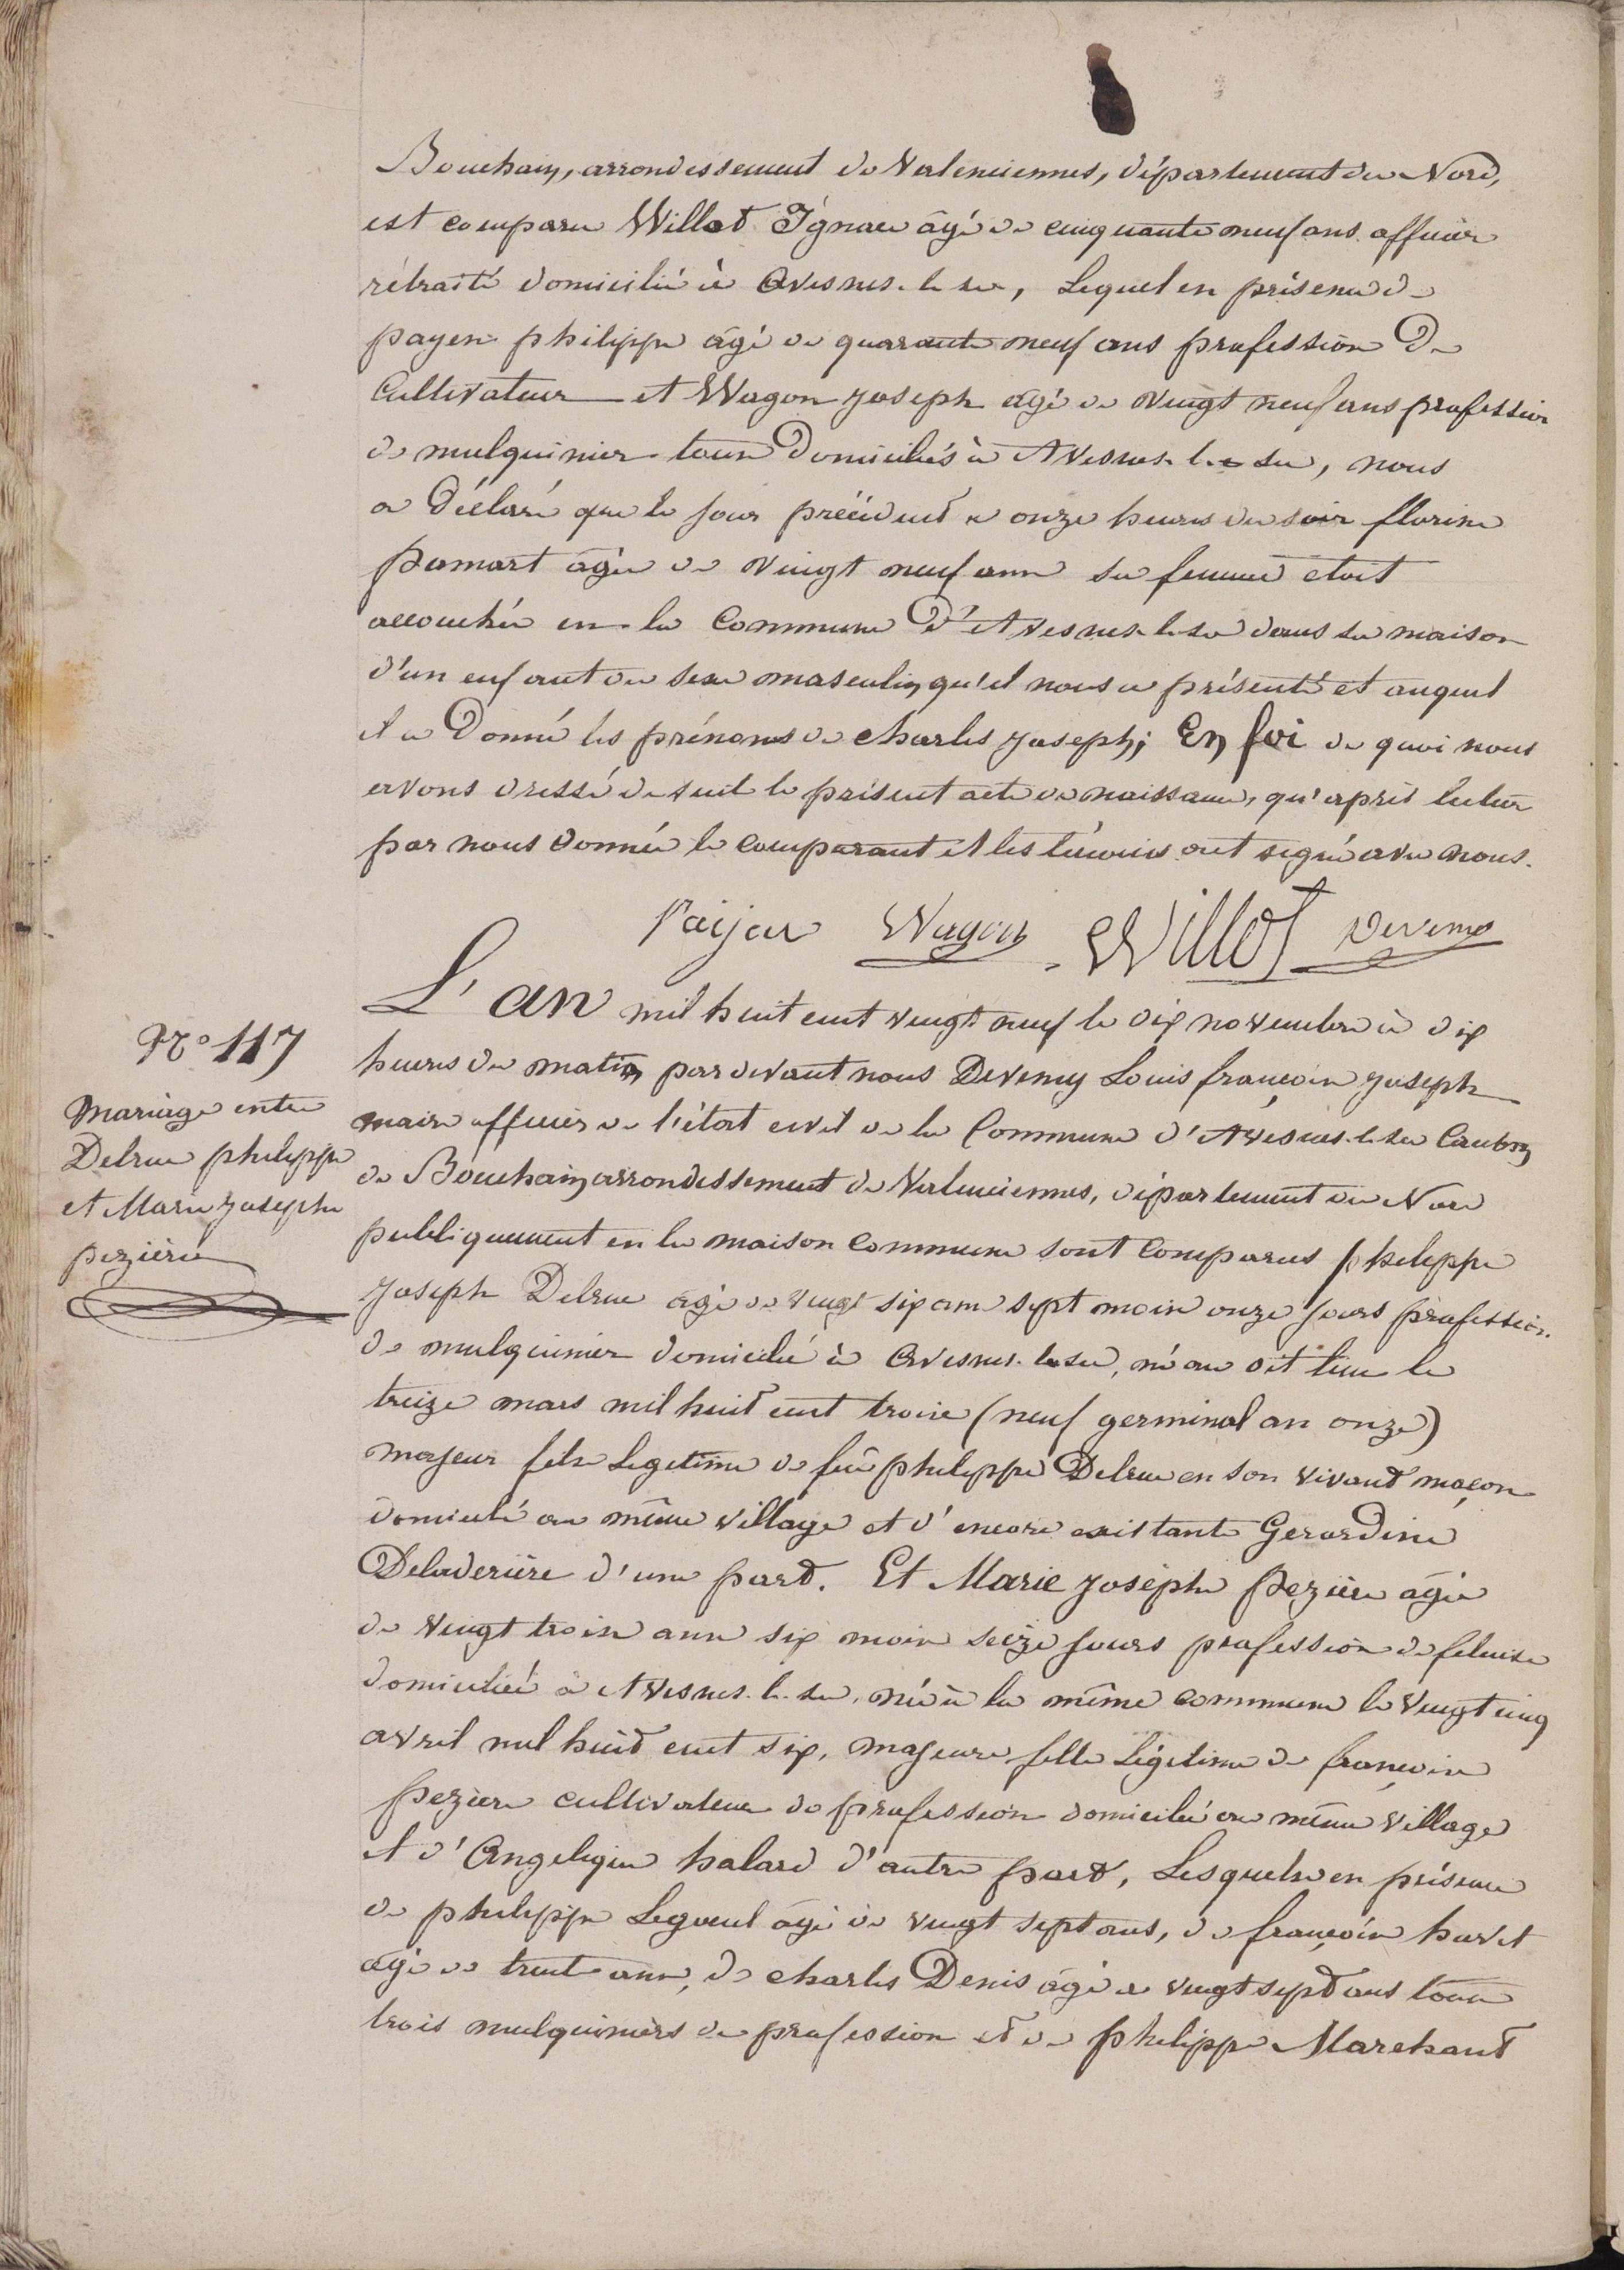 Bouchain, arrondissement de Valenciennes, département du Nord,
est comparu Willot Ignace âgé de cinquante neuf ans officier
rétraité domicilié à Avesnes-le-sec, Lequel en présence de
payen philippe âgé de quarante neuf ans profession De
Cultivateur et Wagon joseph âgé de vingt neuf ans profession
de mulquinier tous Domiciliés à Avesnes-le-sec, nous
a Déclaré que le jour précédent à onze heures du soir florine
pamart âgée de vingt neuf ans sa femme etoit
accouchée en la Commune D'Avesnes-le-sec dans sa maison
d'un enfant du sexe masculin qu'il nous a présenté et auquel
il a Donné les prénoms de charles joseph; En foi de quoi nous
avons dressé de suite le présent acte de naissance, qu'après lecture
par nous donnée le comparant et les témoins ont signé avec nous.
Paijen Wagon Willot Devemy
N° 117
Mariage entre
Delrue philippe
et Marie josephe
pezière
L'an mil huit cent vingt neuf le dix novembre à dix
heures du matin pardevant nous Devemy Louis françois joseph
maire officier de l'état civil de la Commune d'Avesnes-le-sec Canton
de Bouchain arrondissement de Valenciennes, département du Nord
publiquement en la maison commune sont comparus philippe
joseph Delrue âgé de vingt six ans sept mois onze jours profession
de mulquinier domicilié à Avesnes-le-sec, né au dit lieu le
treize mars mil huit cent trois (neuf germinal an onze)
majeur fils Legitime de feû philippe Delrue en son vivant maçon
domicilié au même village et d'encore existante Gerardine
Deladerière d'une part. Et Marie josephe pezière âgée
de vingt trois ans six mois seize jours profession de fileuse
domiciliée à Avesnes-le-sec, née à la même commune le vingt cinq
avril mil huit cent six, majeure fille Légitime de françois
pezière cultivateur de profession domicilié au même village
et d'Angelique halard d'autre part, Lesquels en présence
de philippe Legoeul âgé de vingt sept ans, de françois havet
âgé de trente ans, de charles Denis âgé de vingt sept ans tous
trois mulquiniers de profession et de philippe Marchant